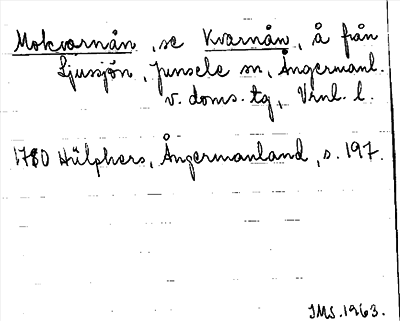 Mokvarnån, se Kvarnån, å från
Ljussjön, Junsele sn, Ångermanl.
v. doms. tg, Vrnl. l.
1780 Hülphers, Ångermanland, s. 197.
IMS. 1963.